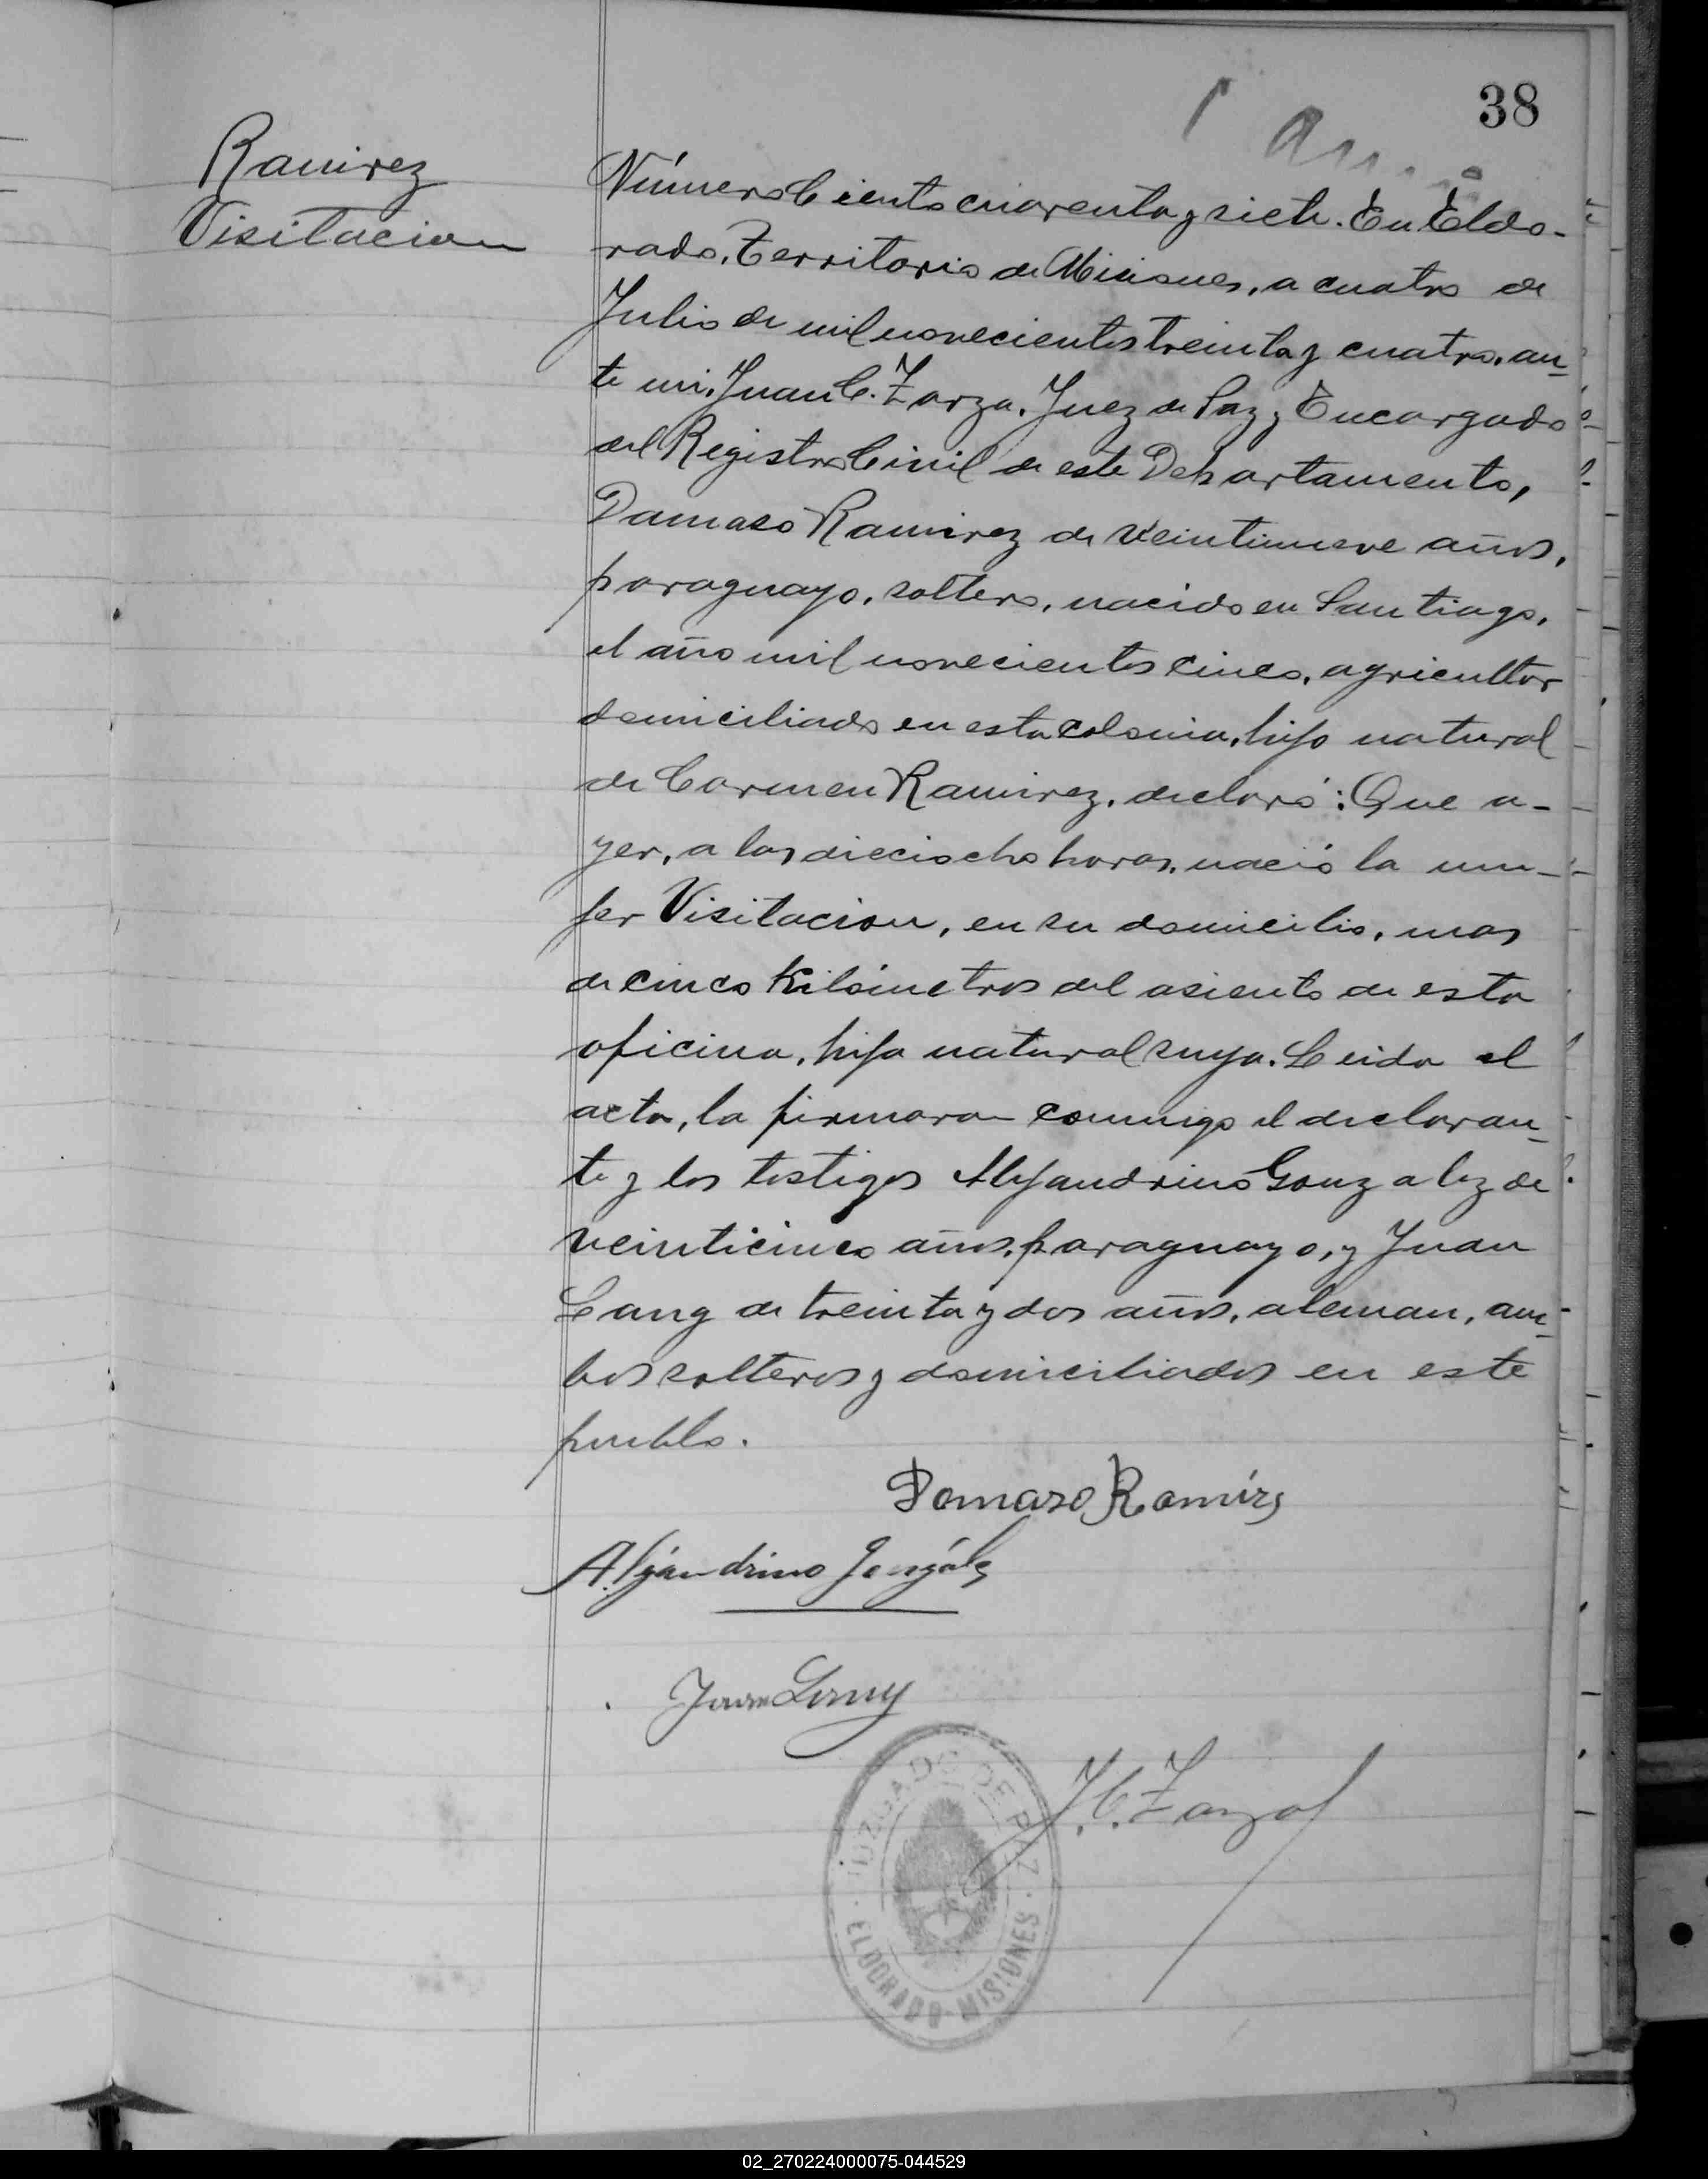 38
Ramirez
Visitacion
Número Ciento cuarenta y siete. En Eldo-
rado, Territorio de Misiones, a cuatro de
Julio de mil novecientos treinta y cuatro, an-
te mi, Juan C. Zarza, Juez de Paz y Encargado
del Registro Civil de este Departamento,
Damaso Ramirez de veintinueve años,
paraguayo, soltero, nacido en Santiago,
el año mil novecientos cinco, agricultor
domiciliado en esta colonia, hijo natural
de Carmen Ramirez, declaró: Que a-
yer, a las dieciocho horas, nació la mu-
jer Visitacion, en su domicilio, mas
de cinco Kilómetros del asiento de esta
oficina, hija natural suya. Leida el
acta, la firmaron conmigo el declaran-
te y los testigos Alejandrino Gonzalez de
veinticinco años, paraguayo, y Juan
Lang de treinta y dos años, aleman, am-
bos solteros y domiciliados en este
pueblo.
Damaso Ramírez
Alejandrino González
Juan Lang
J. C. Zarza
JUZGADO DE PAZ
ELDORADO - MISIONES
02_270224000075-044529